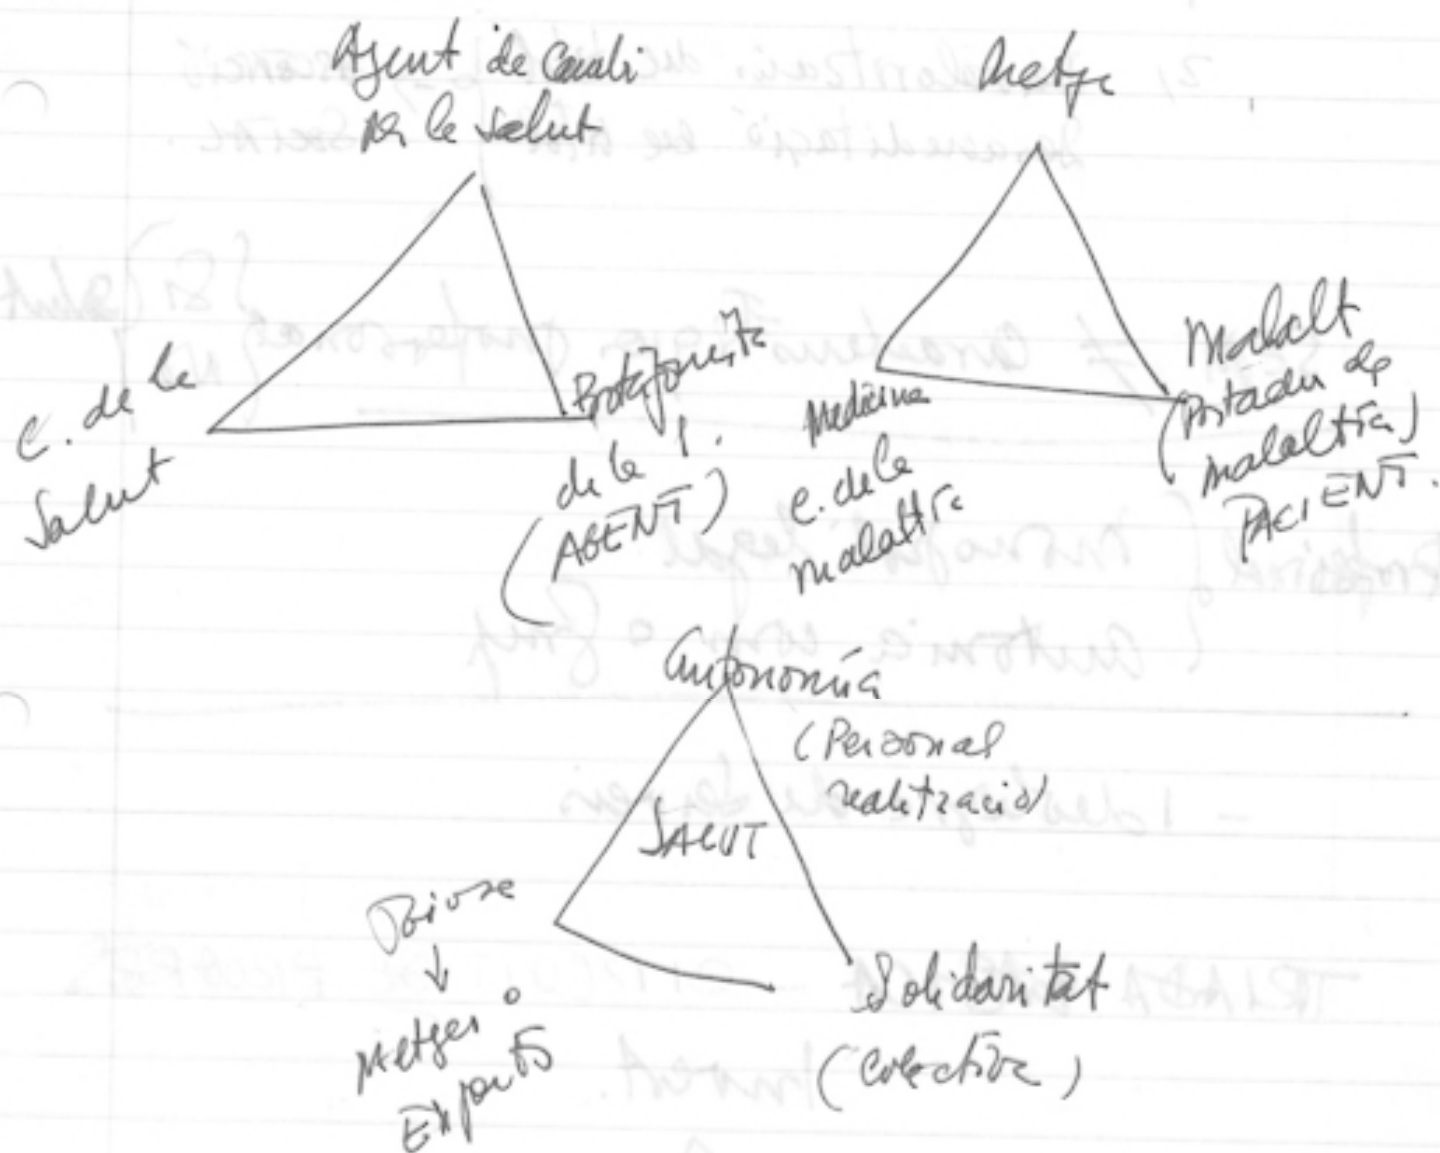 Agent de Canvi
per la salut
Metge
C. de la
Salut
Protagonista
de la S.
(AGENT)
Medicina
C. de la
malaltia
Malalt
(Portador de
malaltia)
PACIENT.
Autonomía
(Personal
realització)
SALUT
Joiosa
Metges o
Experts
Solidaritat
(Colectiva)